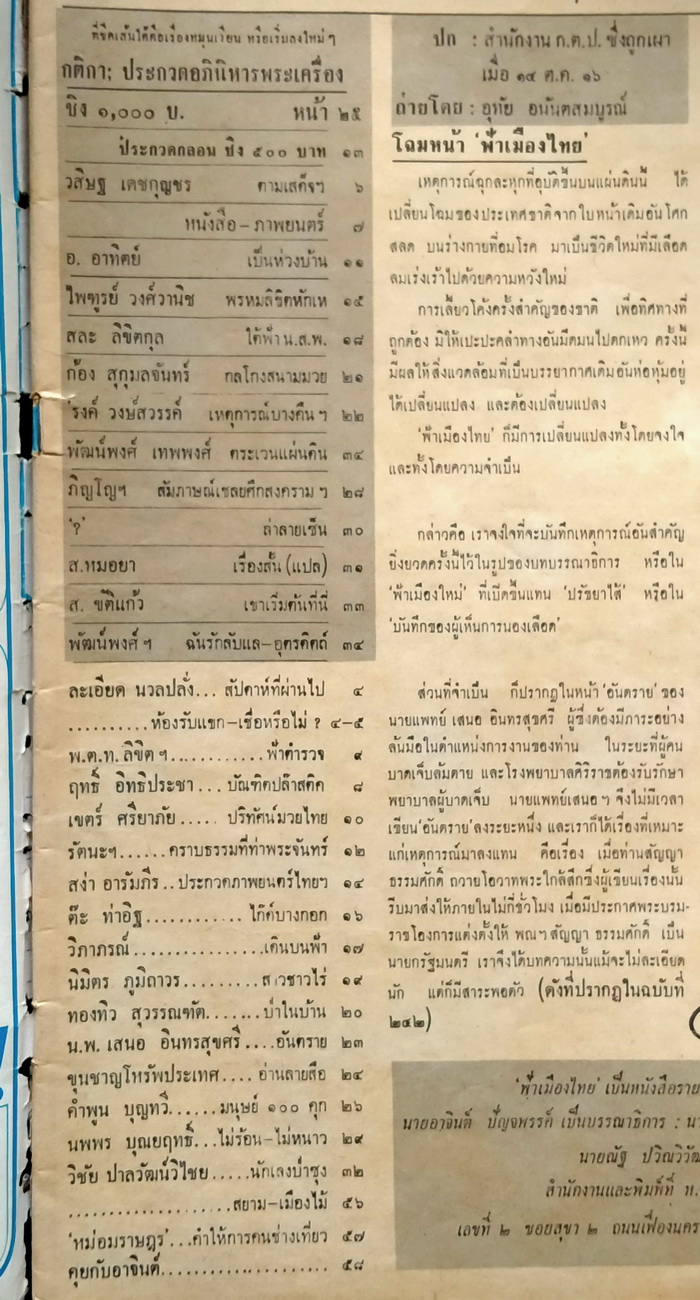 ที่ขีดเส้นใต้คือเรื่องหมุนเวียน หรือเริ่มลงใหม่ ๆ
กติกา; ประกวดอภินิหารพระเครื่อง
ชิง ๑,๐๐๐ บ. หน้า ๒๕
ประกวดกลอน ชิง ๕๐๐ บาท ๑๓
วสิษฐ เดชกุญชร ตามเสด็จฯ ๖
หนังสือ-ภาพยนตร์ ๗
อ. อาทิตย์ เป็นห่วงบ้าน ๑๑
ไพฑูรย์ วงศ์วานิช พรหมลิขิตหักเห ๑๕
สละ ลิขิตกุล ใต้ฟ้า น.ส.พ. ๑๘
ก้อง สุกุมลจันทร์ กลโกงสนามมวย ๒๑
'รงค์ วงษ์สวรรค์ เหตุการณ์บางคืน ฯ ๒๒
พัฒน์พงศ์ เทพพงศ์ ตระเวนแผ่นดิน ๓๔
ภิญโญฯ สัมภาษณ์เชลยศึกสงคราม ๆ ๒๘
'?' ล่าลายเซ็น ๓๐
ส.หมอยา เรื่องสั้น (แปล) ๓๑
ส. ขัติแก้ว เขาเริ่มต้นที่นี่ ๓๓
พัฒน์พงศ์ ฯ ฉันรักลับแล-อุตรดิตถ์ ๓๔
ละเอียด นวลปลั่ง... สัปดาห์ที่ผ่านไป ๔
..........ห้องรับแขก-เชื่อหรือไม่ ? ๔-๕
พ.ต.ท. ลิขิต ฯ............ฟ้าตำรวจ ๙
ฤทธิ์ อิทธิประชา... บัณฑิตปล๊าสติค ๘
เขตร์ ศรียาภัย..... ปริทัศน์มวยไทย ๑๐
รัตนะฯ......คราบธรรมที่ท่าพระจันทร์ ๑๒
สง่า อารัมภีร..ประกวดภาพยนตร์ไทยฯ ๑๔
ต๊ะ ท่าอิฐ............ไก๊ด์บางกอก ๑๖
วิภาภรณ์................เดินบนฟ้า ๑๗
นิมิตร ภูมิถาวร.........สาวชาวไร่ ๑๙
ทองทิว สุวรรณทัต.......ป่าในบ้าน ๒๐
น.พ. เสนอ อินทรสุขศรี....อันตราย ๒๓
ขุนชาญโหรัพประเทศ.... อ่านลายสือ ๒๔
คำพูน บุญทวี......มนุษย์ ๑๐๐ คุก ๒๖
นพพร บุณยฤทธิ์...ไม่ร้อน-ไม่หนาว ๒๙
วิชัย ปาลวัฒน์วิไชย.....นักเลงบำซุง ๓๒
....................สยาม-เมืองไม้ ๕๖
'หม่อมราษฎร'...คำให้การคนช่างเที่ยว ๕๗
คุยกับอาจินต์.................... ๕๘
ปก : สำนักงาน ก.ต.ป. ซึ่งถูกเผา
เมื่อ ๑๔ ต.ค. ๑๖
ถ่ายโดย : อุทัย อนันตสมบูรณ์
โฉมหน้า 'ฟ้าเมืองไทย'
เหตุการณ์ฉุกละหุกที่อุบัติขึ้นบนแผ่นดินนี้ ได้
เปลี่ยนโฉมของประเทศชาติจากใบหน้าเดิมอันโศก
สลด บนร่างกายที่อมโรค มาเป็นชีวิตใหม่ที่มีเลือด
ลมเร่งเร้าไปด้วยความหวังใหม่
การเลี้ยวโค้งครั้งสำคัญของชาติ เพื่อทิศทางที่
ถูกต้อง มิให้เปะปะคลำทางอันมืดมนไปตกเหว ครั้งนี้
มีผลให้สิ่งแวดล้อมที่เป็นบรรยากาศเดิมอันห่อหุ้มอยู่
ได้เปลี่ยนแปลง และต้องเปลี่ยนแปลง
'ฟ้าเมืองไทย' ก็มีการเปลี่ยนแปลงทั้งโดยจงใจ
และทั้งโดยความจำเป็น
กล่าวคือ เราจงใจที่จะบันทึกเหตุการณ์อันสำคัญ
ยิ่งยวดครั้งนี้ไว้ในรูปของบทบรรณาธิการ หรือใน
'ฟ้าเมืองใหม่' ที่เบิดขึ้นแทน 'ปรัชยาไส้' หรือใน
'บันทึกของผู้เห็นการนองเลือด'
ส่วนที่จำเป็น ก็ปรากฏในหน้า 'อันตราย' ของ
นายแพทย์ เสนอ อินทรสุขศรี ผู้ซึ่งต้องมีภาระอย่าง
ล้นมือในตำแหน่งการงานของท่าน ในระยะที่ผู้คน
บาดเจ็บล้มตาย และโรงพยาบาลศิริราชต้องรับรักษา
พยาบาลผู้บาดเจ็บ นายแพทย์เสนอ ฯ จึงไม่มีเวลา
เขียน'อันตราย'ลงระยะหนึ่ง และเราก็ได้เรื่องที่เหมาะ
แก่เหตุการณ์มาลงแทน คือเรื่อง เมื่อท่านสัญญา
ธรรมศักดิ์ ถวายโอวาทพระใกล้สึกซึ่งผู้เขียนเรื่องนั้น
รีบมาส่งให้ภายในไม่กี่ชั่วโมง เมื่อมีประกาศพระบรม-
ราชโองการแต่งตั้งให้ พณฯ สัญญา ธรรมศักดิ์ เป็น
นายกรัฐมนตรี เราจึงได้บทความนั้นแม้จะไม่ละเอียด
นัก แต่ก็มีสาระพอตัว (ดังที่ปรากฏในฉบับที่
๒๔๒)
'ฟ้าเมืองไทย' เป็นหนังสือราย
นายอาจินต์ ปัญจพรรค์ เป็นบรรณาธิการ : นา
นายณัฐ ปวิณวิวัฒ
สำนักงานและพิมพ์ที่ ห.
เลขที่ ๒ ซอยสุขา ๒ ถนนเฟื่องนคร